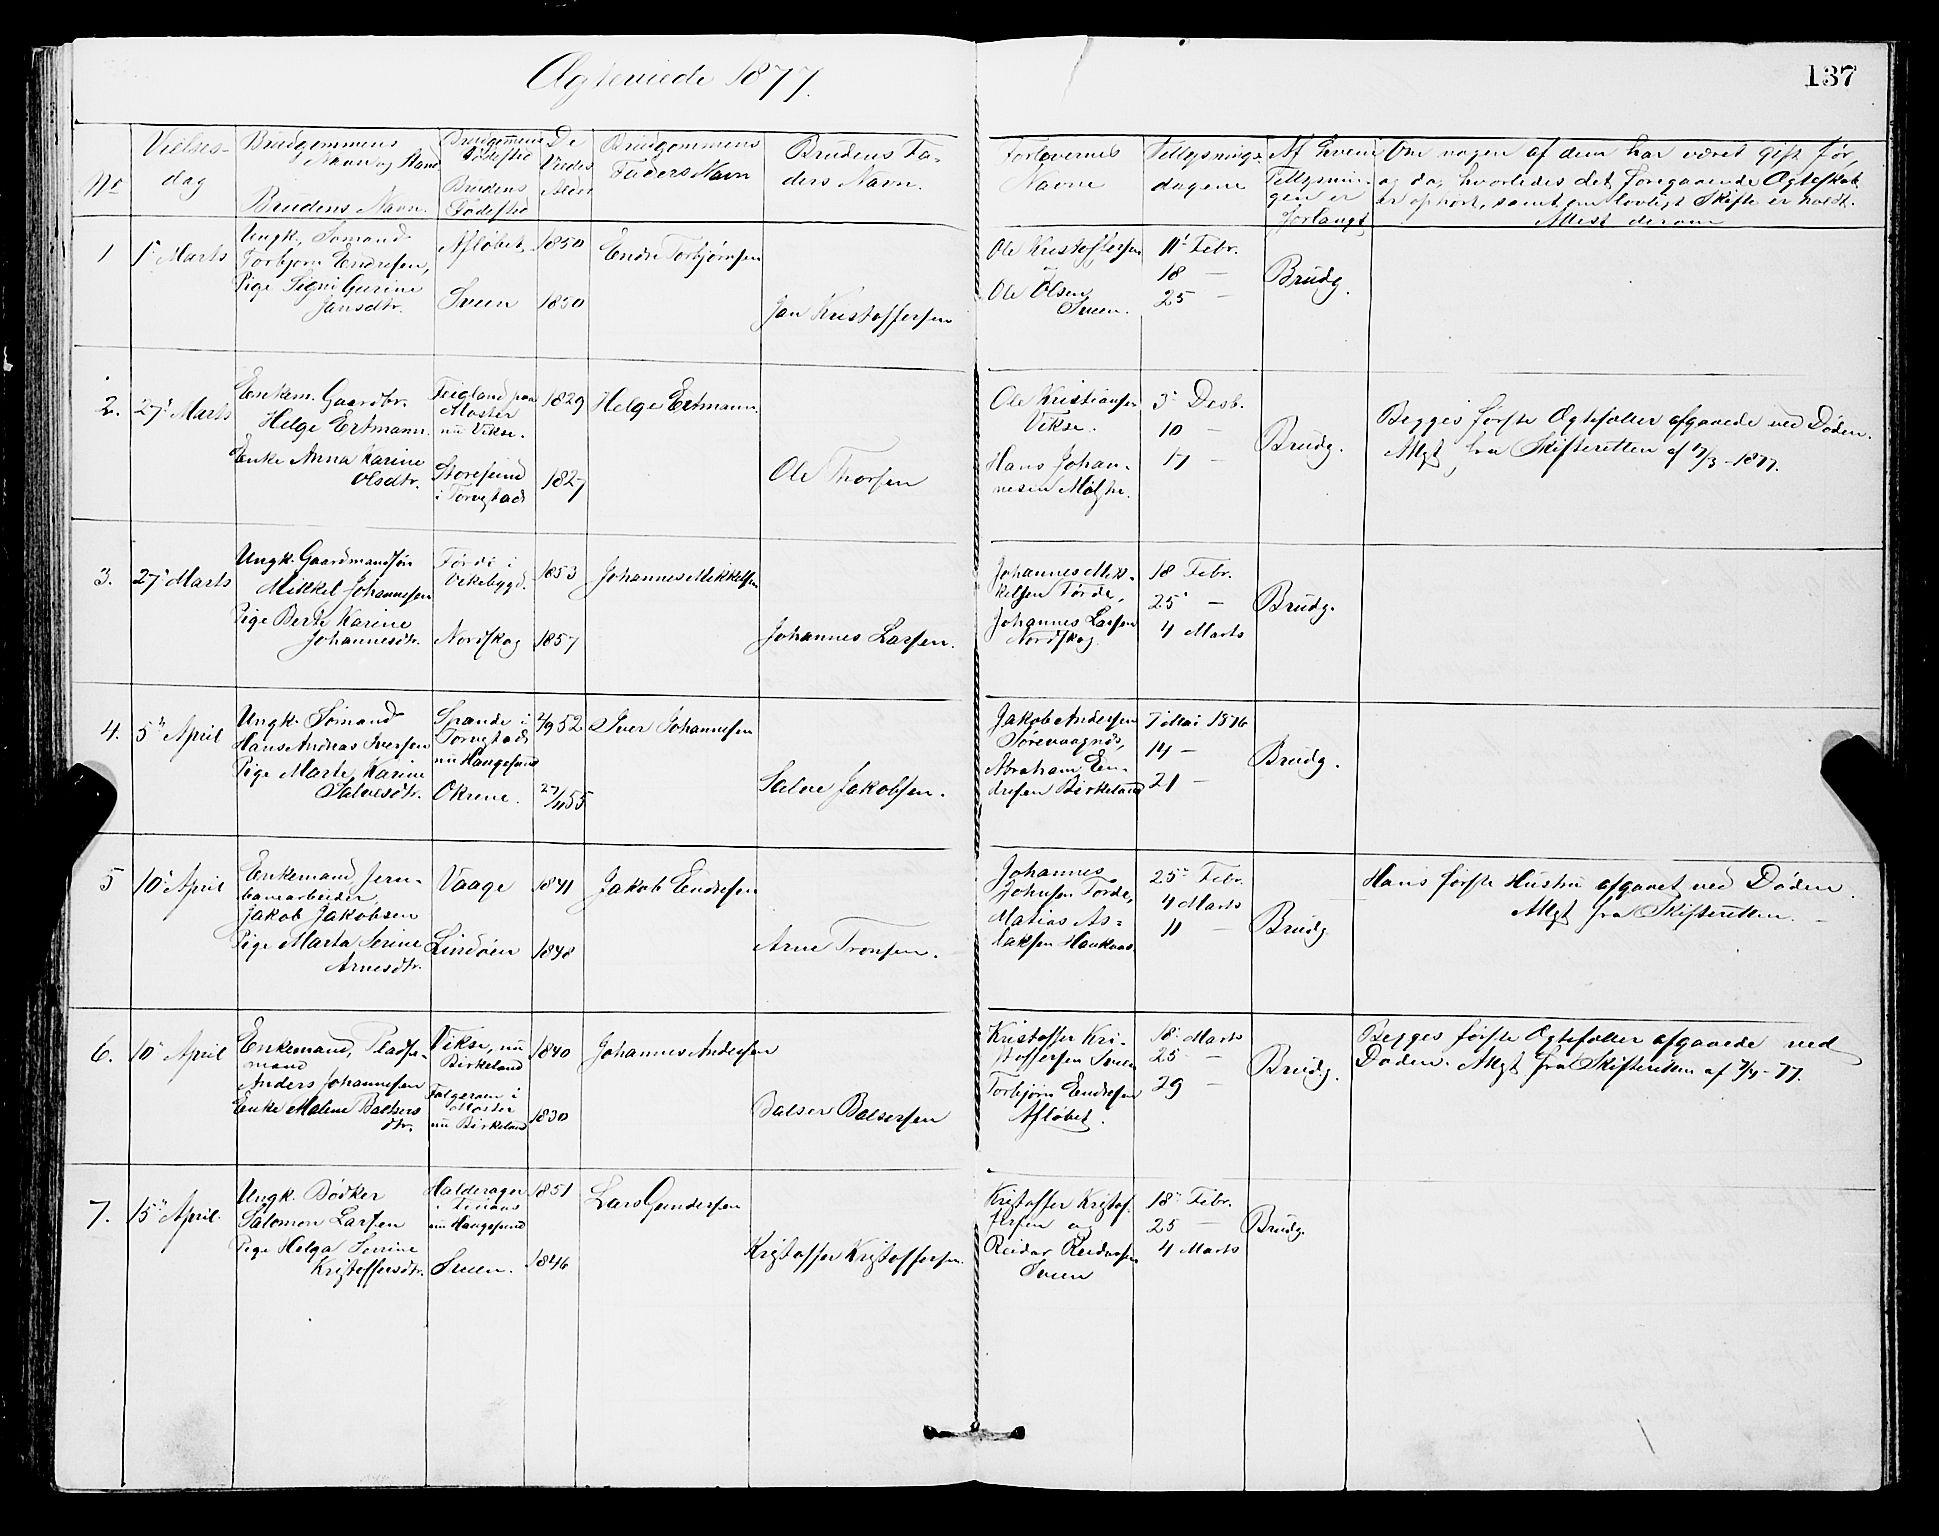 Ægteviede 1877.
137
No
Vielses-
dag
Brudgommens
Navn og Stand
Brudens Navn.
Brudgommens
Fødested
Brudens
Fødested
De
Viedes
Alder
Brudgommens
Faders Navn
Brudens Fa-
ders Navn.
Forlovernes
Navne
Tillysnings-
dagene
Af hvem
Tillysnin-
gen er
forlangt
Om nogen af dem har været gift før,
og da, hvorledes det foregaaende Ægteskab
er ophørt, samt om lovligt Skifte er holdt.
Attest derom
1
1' Marts
Ungk. Sømand
Torbjørn Endresen,
Pige Signi Gurine
Jansdtr.
Afløbet
Sveen
1850
1850
Endre Torbjørnsen
Jan Kristoffersen
Ole Kristoffersen
og
Ole Olsen
Sveen.
11' Febr.
18 —
25 —
Brudg.
2.
27' Marts
Enkem. Gaardbr.
Helge Ertmann.
Enke Anna Karine
Olsdtr.
Feigland paa
Moster
nu Vikse.
Storesund
i Torvestad
1829
1827
Helge Ertmann.
Ole Thorsen
Ole Kristiansen
Vikse.
Hans Johan-
nesen
3' Desb.
10 —
17 —
Brudg.
Begges første Ægtefæller afgaaede ved Døden.
Attest fra Skifteretten af 7/3-1877.
3.
27' Marts
Ungk. Gaardmandssøn
Mikkel Johannesen
Pige Berte Karine
Johannesdtr.
Førde i
Vikebygd.
Nordskog
1853
1857
Johannes Mikkelsen
Johannes Larsen.
Johannes Mik-
kelsen Førde,
Johannes Larsen
Nordskog.
18 Febr.
25' —
4 Marts
Brudg.
4.
5' April
Ungk. Sømand
Hans Andreas Iversen
Pige Marte Karine
Salvesdtr.
Spande i
Torvestad
nu Haugesund
Økrene.
2/9 52
27/11 55
Iver Johannesen
Salve Jakobsen.
Jakob Andersen
Sørevaagnes,
Abraham En-
dresen Birkeland
7 Mai 1876
14 —
21 —
Brudg.
5
10' April
Enkemand Jern-
banearbeider
Jakob Jakobsen
Pige Marta Serine
Arnesdtr.
Vaage
Lindøen
1841
1848
Jakob Endresen
Arne Tronsen.
Johannes
Johnsen Førde,
Matias As-
laksen Haukaas
25' Febr.
4 Marts
11 —
Brudg.
Hans første Hustru afgaaet ved Døden.
Attest fra Skifteretten. —
6.
10' April
Enkemand, Pladse-
mand
Anders Johannesen
Enke Malene Baltsers
dtr.
Vikse, nu
Birkeland
Folgerøen i
Moster
nu Birkeland
1840
1830
Johannes Andersen
Balser Balsersen
Kristoffer Kri-
stoffersen Sveen
Torbjørn Endresen
Afløbet.
18' Marts
25 —
29 —
Brudg.
Begges første Ægtefæller afgaaede ved
Døden. Attest fra Skifteretten af 7/4-77.
7.
15' April.
Ungk. Bødker
Salomon Larsen
Pige Helga Serine
Kristoffersdtr.
Halderager
i Finaas
nu Haugesund
Sveen.
1851
1846
Lars Gundersen
Kristoffer Kristoffersen.
Kristoffer Kristof-
fersen og
Reidar Reidarsen
Sveen
18' Febr.
25 —
4 Marts
Brudg.